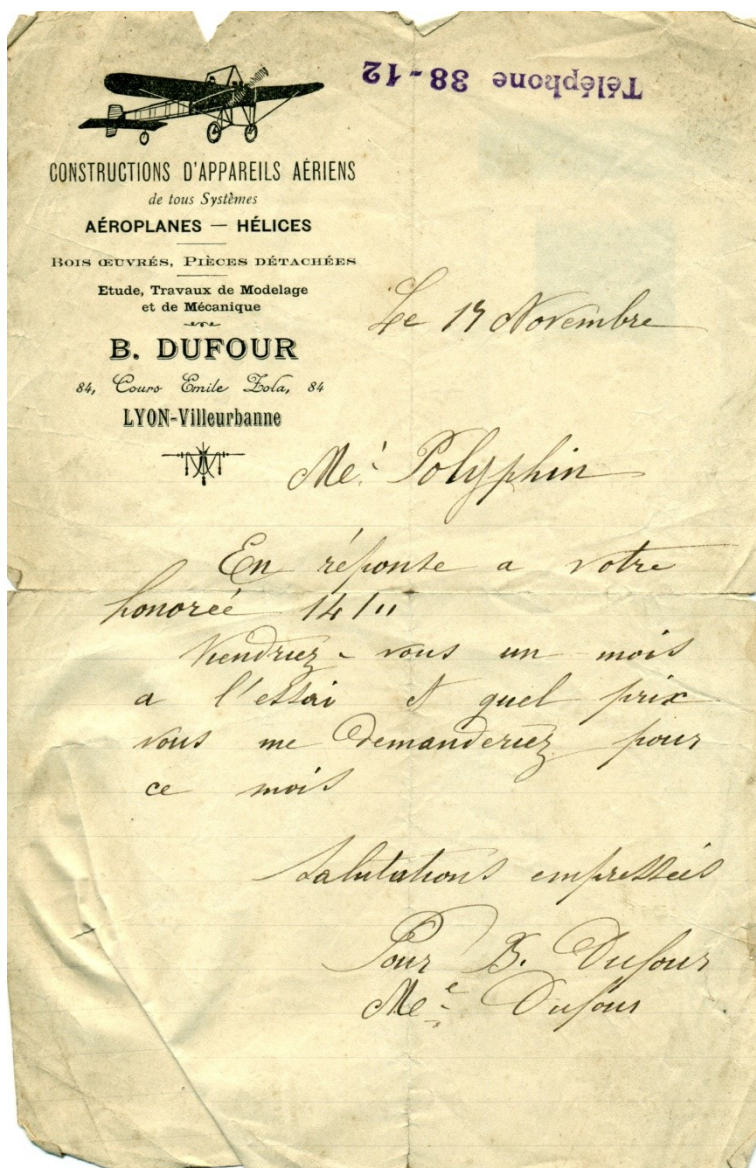 Téléphone 38-12
CONSTRUCTIONS D'APPAREILS AÉRIENS
de tous Systèmes
AÉROPLANES — HÉLICES
BOIS ŒUVRÉS, PIÈCES DÉTACHÉES
Etude, Travaux de Modelage
et de Mécanique
B. DUFOUR
84, Cours Emile Zola, 84
LYON-Villeurbanne
Le 17 Novembre
Me! Polyphin
En réponse a votre
honoreé 14/11
Viendriez-vous un mois
a l'essai et quel prix
vous me demanderiez pour
ce mois
Salutations empresseés
Pour B. Dufour
Me Dufour